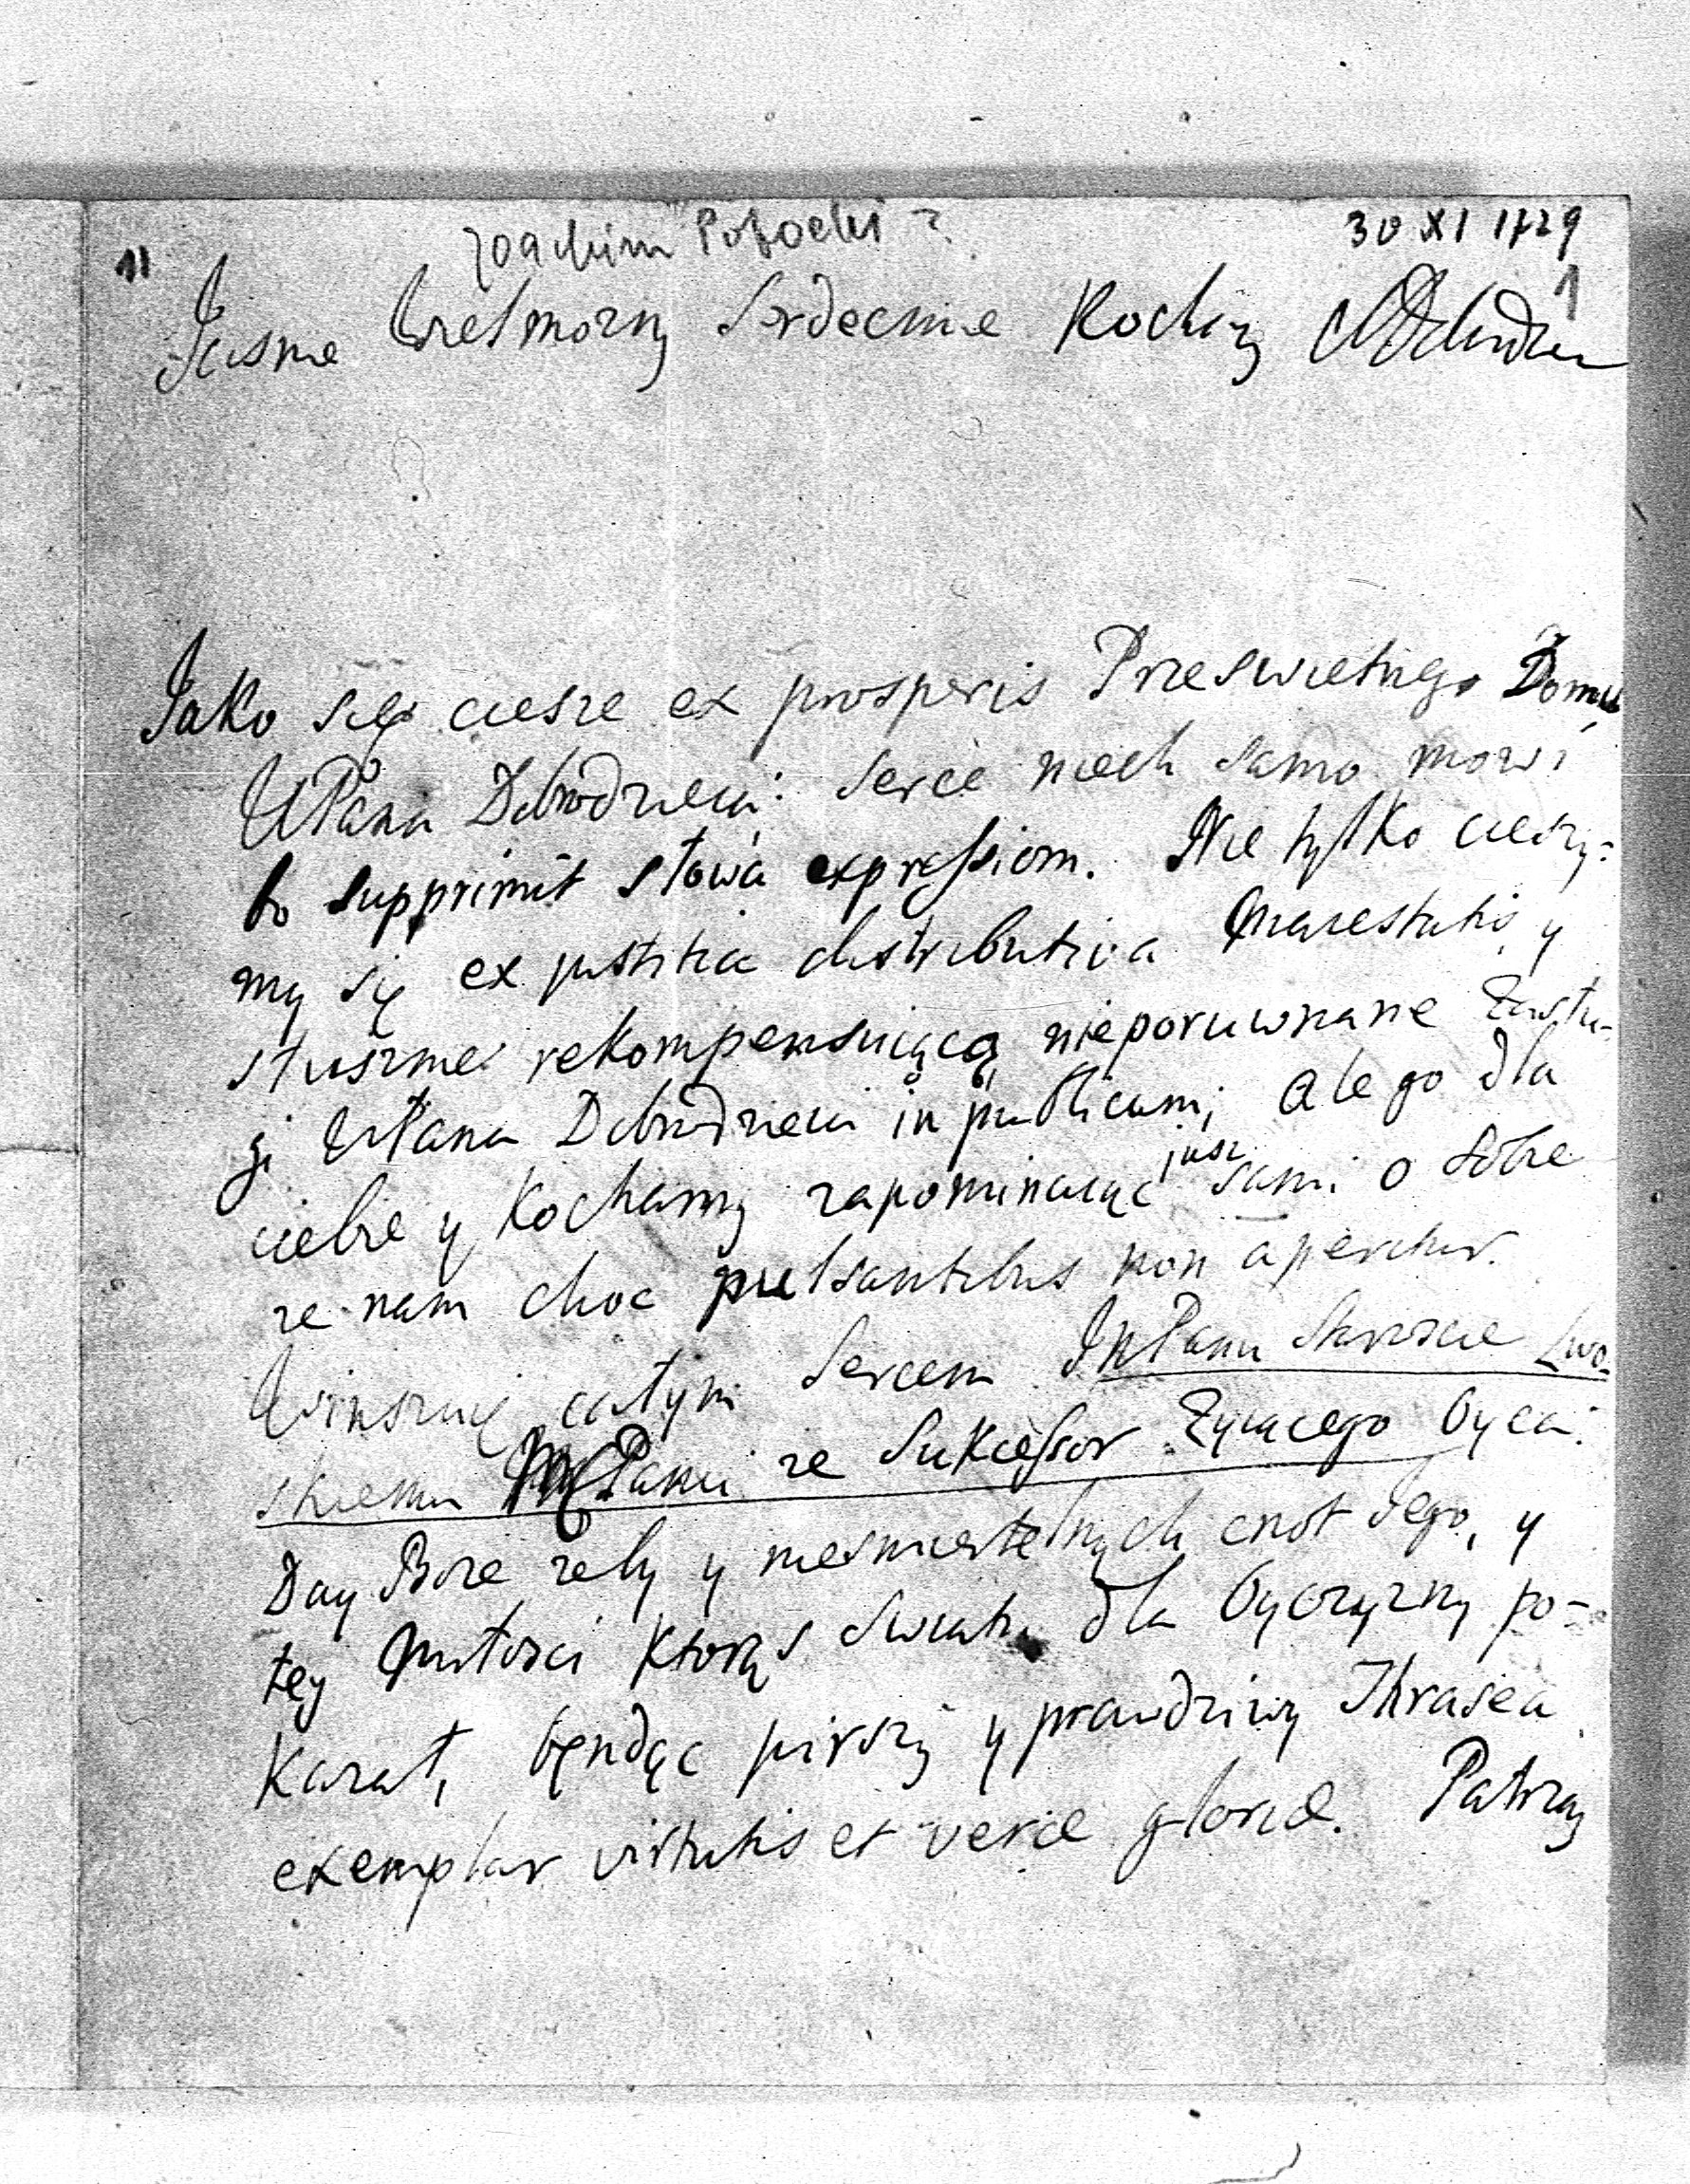 Joachim Potocki ?
30 XI 1729
11
1
Jasnie Wielmozny Serdecznie Kochany
Jako się ciesze ex prosperis Prześwietnego Domu
WPana Dobrodzieia: Serce niech samo mowi
bo supprimit słowa expressiom. Nie tylko cieszy:
my się ex justitia distributiva Maiestatis y
słusznei rekompensuiącą nieporuwnane Zasłu-
gi WPana Dobrodzieia in publicum; Ale go dla
ciebie y Kochamy zapominaiąc iusz sami o Sobie
ze nam choc pulsantibus non aperitur.
Winszuię całym Sercem Panu Staroscie Lwo-
skiemu Panu ze Sukcessor Zyiącego Oyca:
Day Boze zeby y niesmiertelnych cnot Jego, y
tey Miłosci Ktorąs Swiatu dla Oyczyzny po-
Kazał, będąc pirszy y prawdziwy Thrasea
exemplar virtutis et verae gloriae. Patrzą